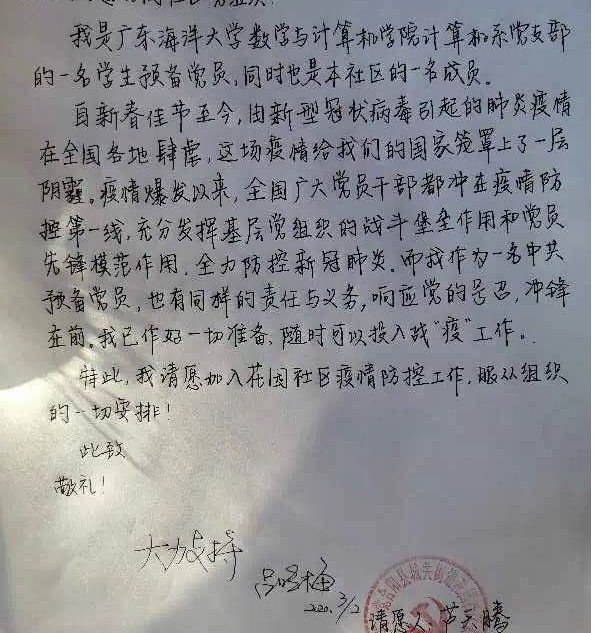 我是广东海洋大学数学与计算机学院计算机系党支部
的一名学生预备党员,同时也是本社区的一名成员。
自新春佳节至今,由新型冠状病毒引起的肺炎疫情
在全国各地肆虐,这场疫情给我们的国家笼罩上了一层
阴霾。疫情爆发以来,全国广大党员干部都冲在疫情防
控第一线,充分发挥基层党组织的战斗堡垒作用和党员
先锋模范作用,全力防控新冠肺炎。而我作为一名中共
预备党员,也有同样的责任与义务,响应党的号召,冲锋
在前。我已作好一切准备,随时可以投入战“疫”工作。
特此,我请愿加入花园社区疫情防控工作,服从组织
的一切安排!
此致
敬礼!
大力支持
2020.3/2
请愿人:芦天腾